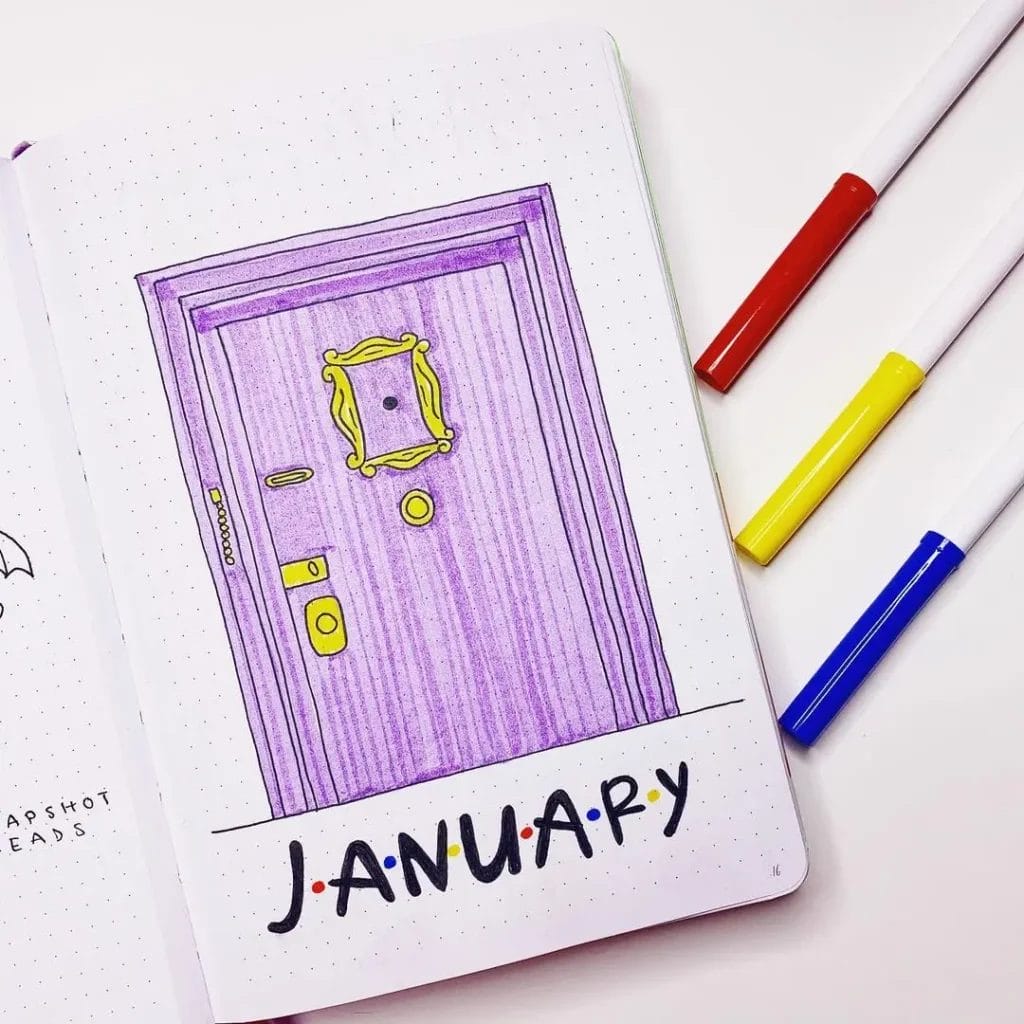 APSHOT
EADS
J·A·N·U·A·R·Y
16